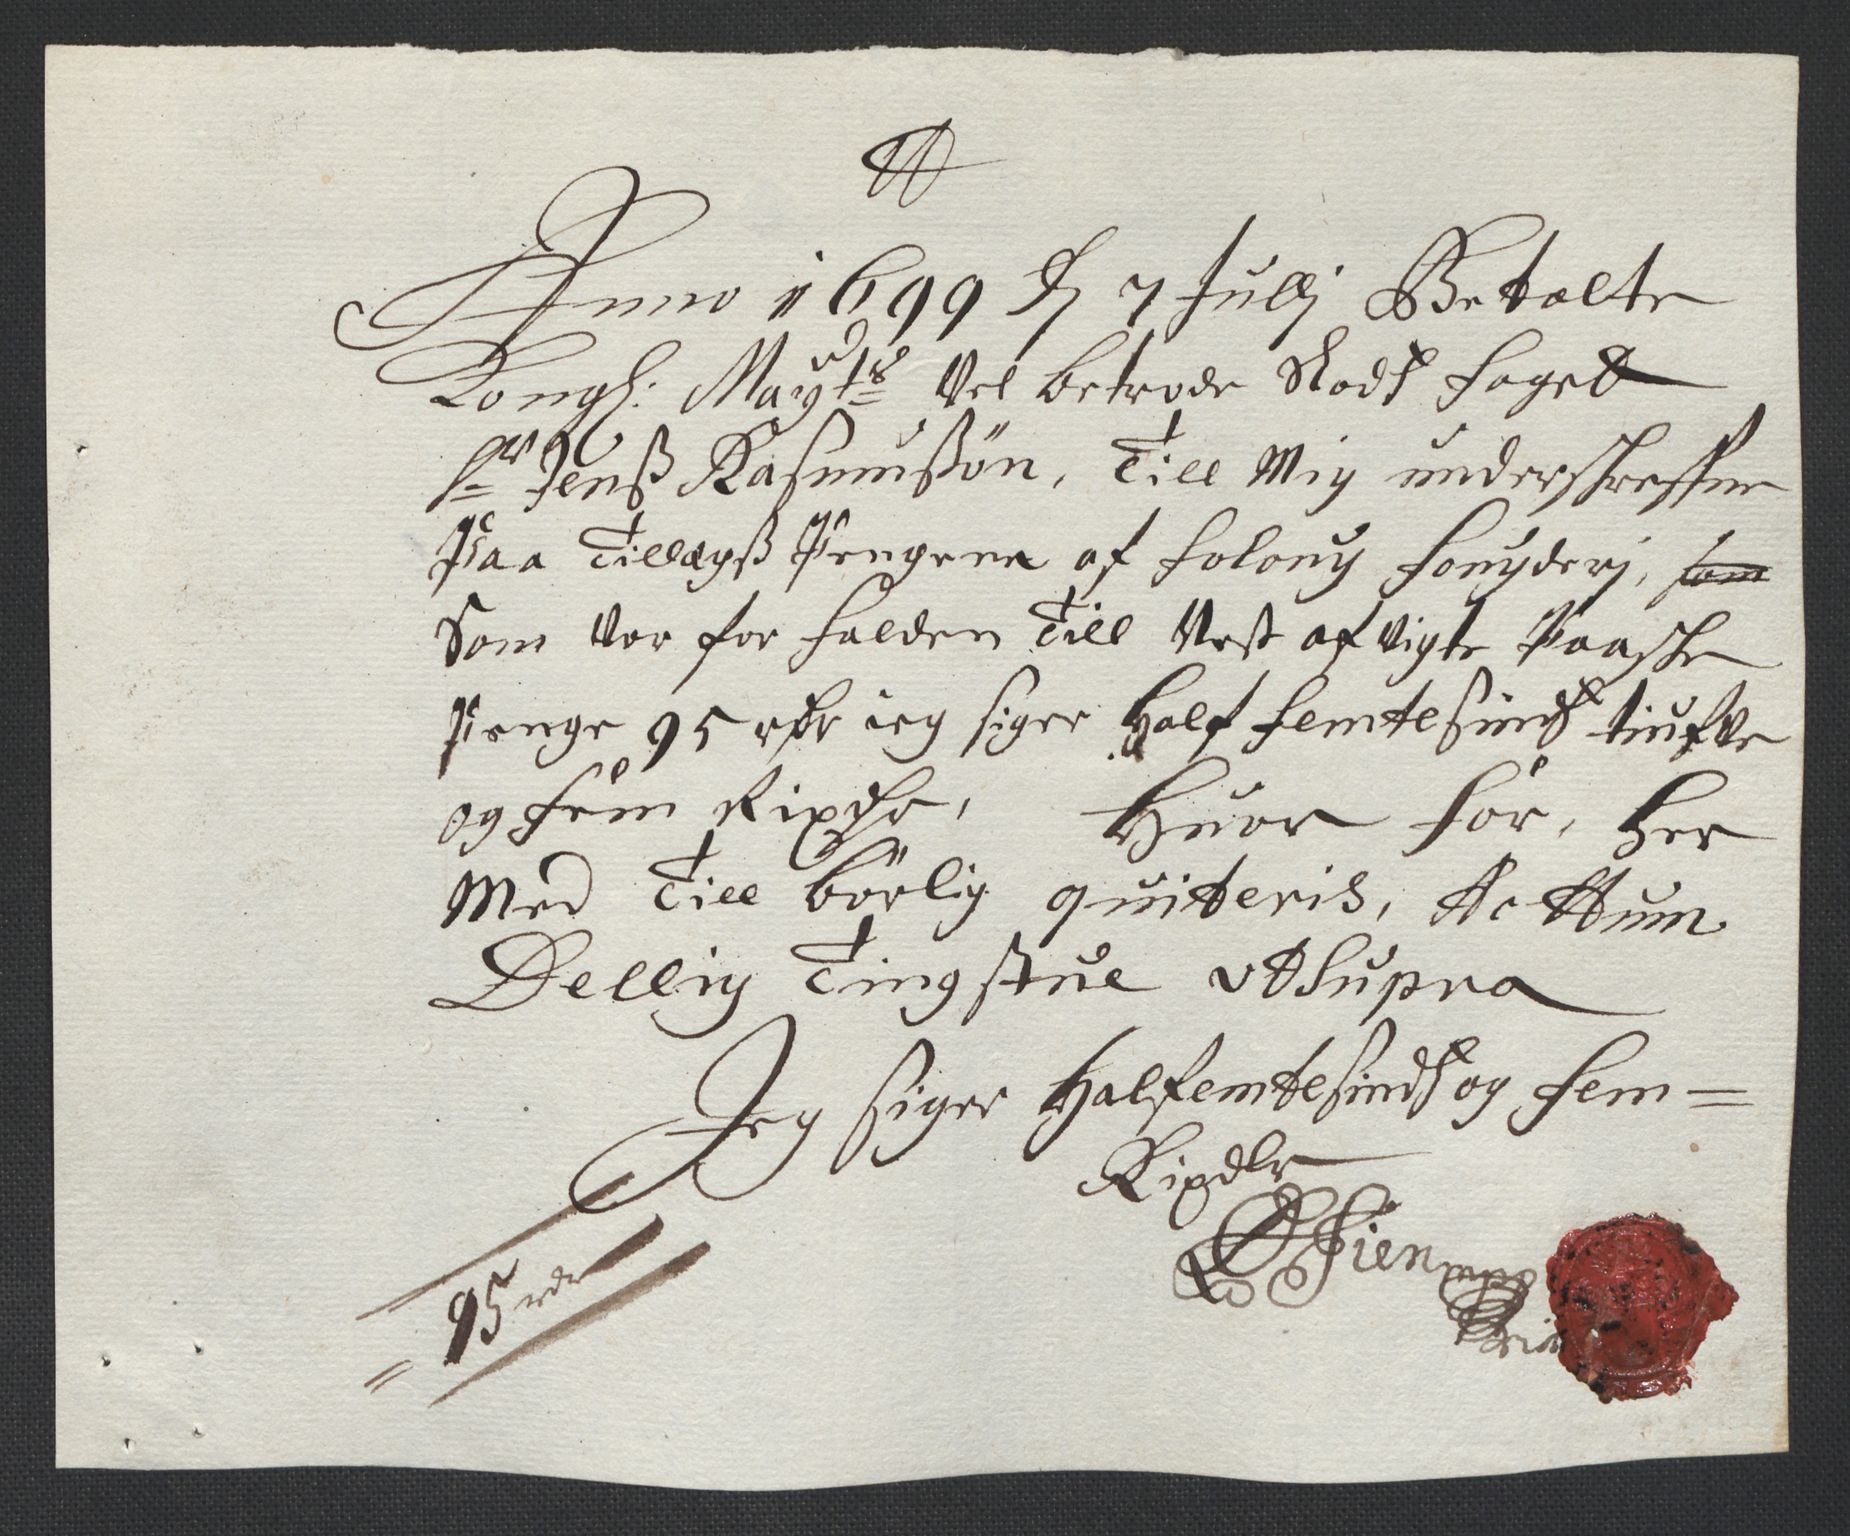 Anno 1699 d 7 Julij Betalte
Kongl: Maytts Vel betrode Stads faaget
Sr Jenß Rasmußön, Till Mig underschreffne
Paa Tillægß Pengene af
Som Var for falden Till Nest afvigte Paasche
Penge 95 rdr ieg siger Half femtesinds tiufve
og fem Rixdlr, Huor for, her
Med Till börlig quiteris, Actum
Dellig Tingstue ut Supra
Jeg siger Halfemtesinds og fem=
Rixdlr
95 rdr